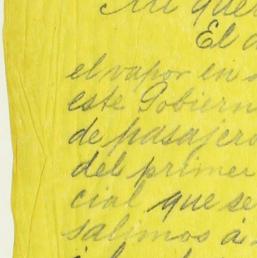 Mi que
El d
el vapor en s
este Gobiern
de pasajero
del primer
cial que se
salimos á